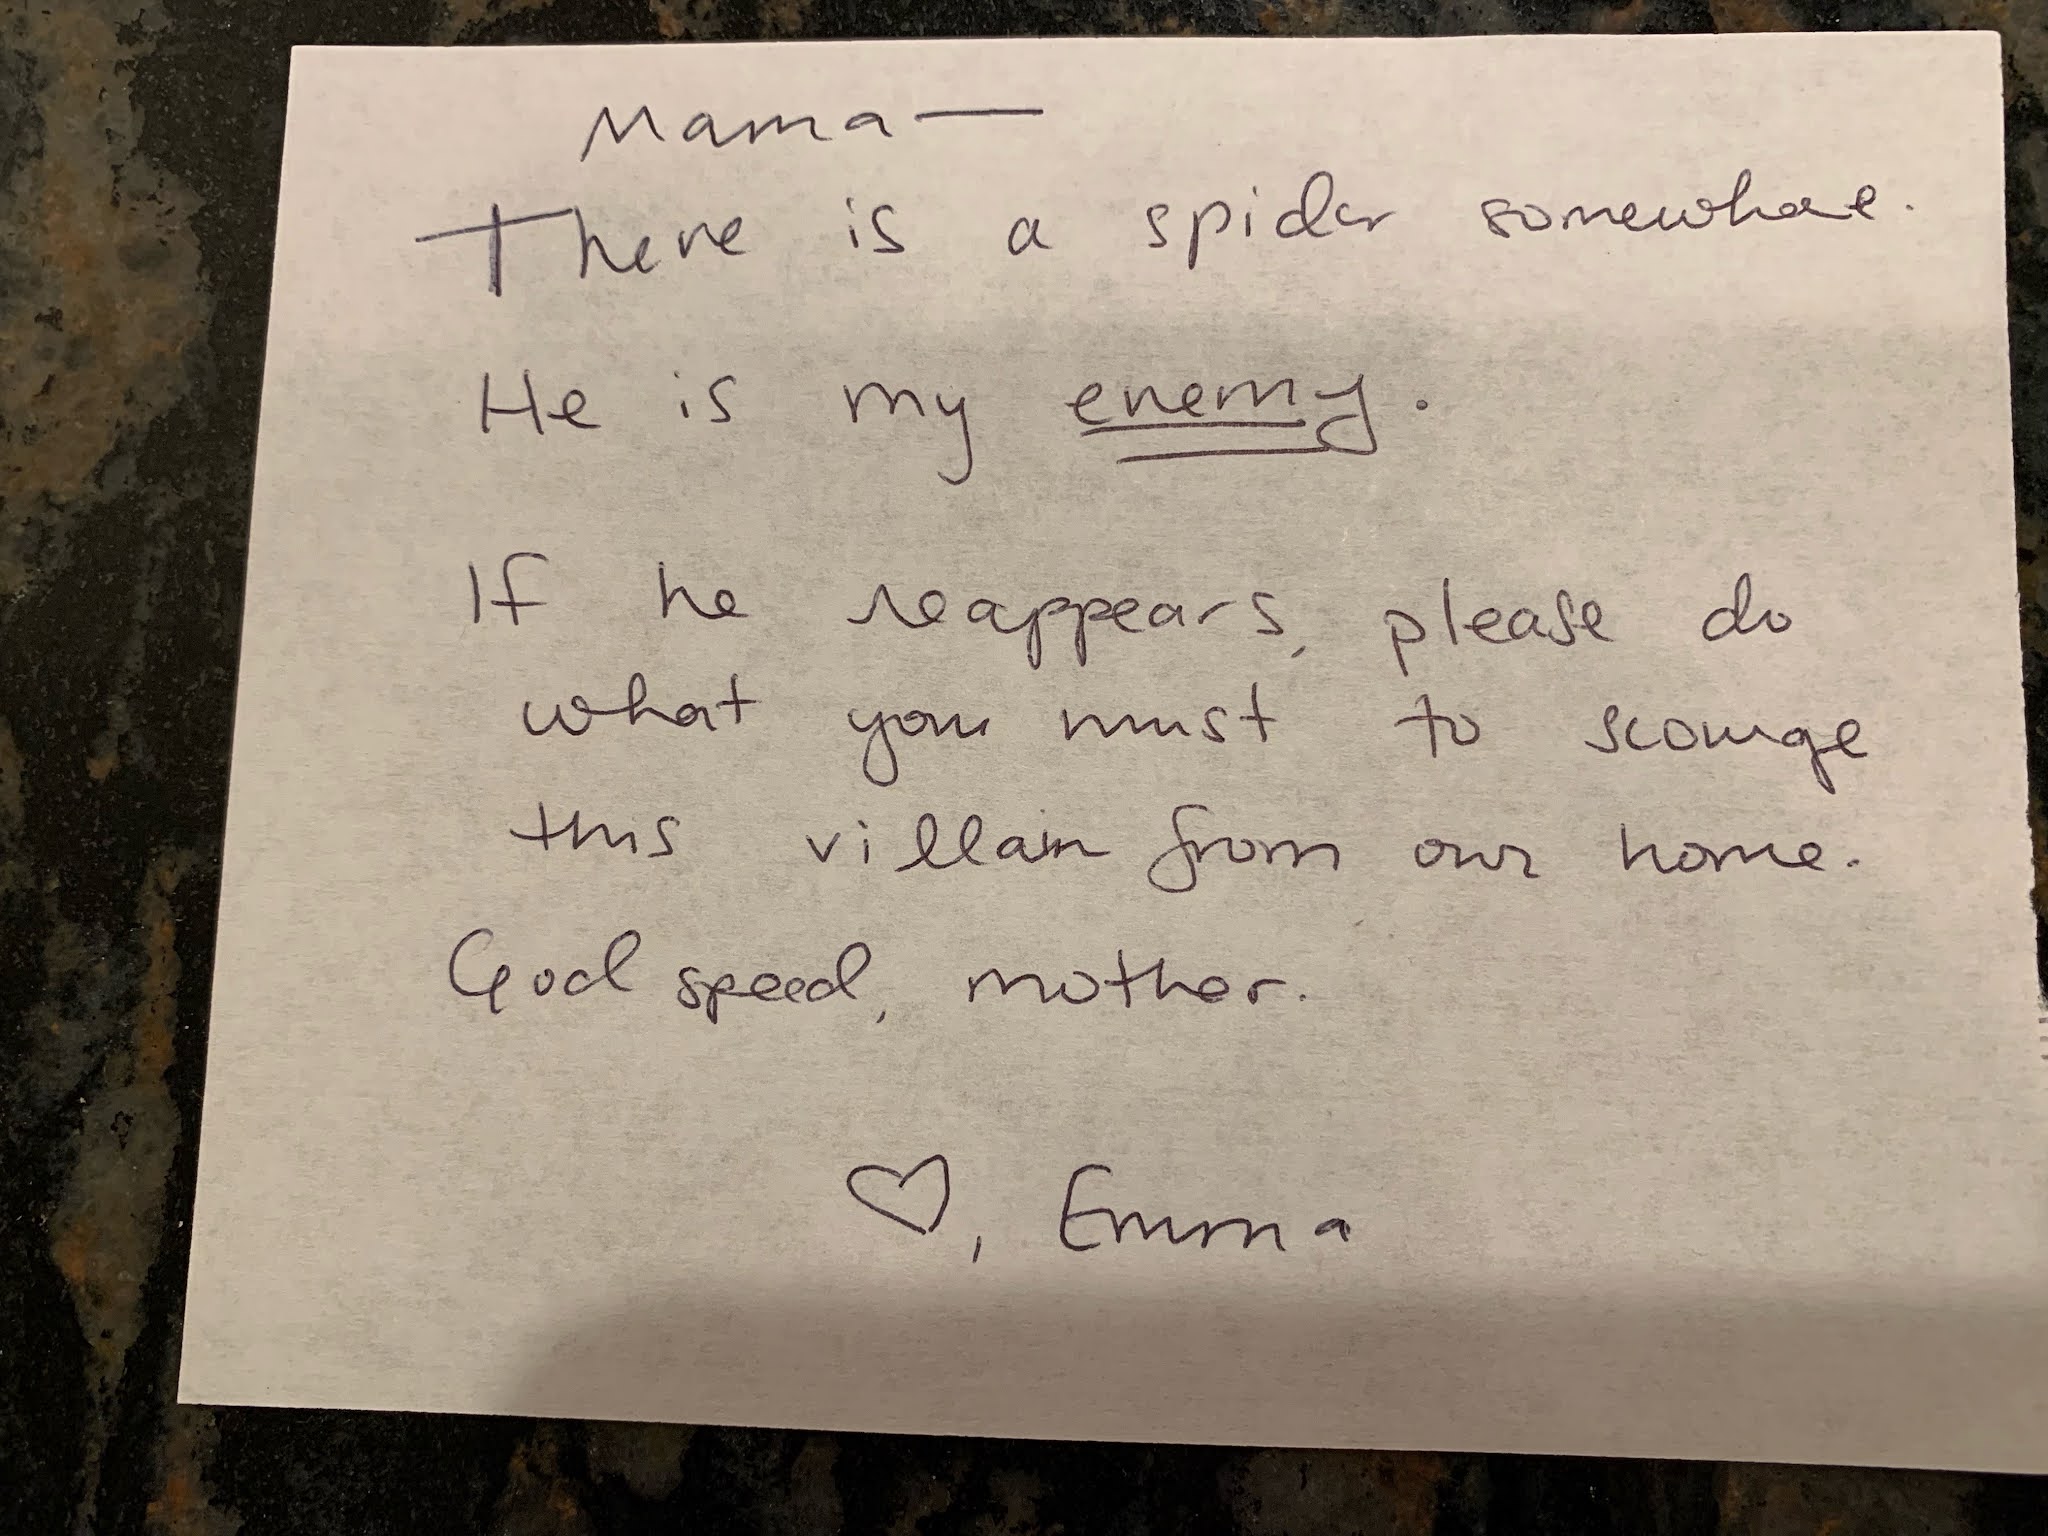 Mama—
There is a spider somewhere.
He is my enemy.
If he reappears, please do
what you must to scourge
this villain from our home.
God speed, mother.
♡, Emma